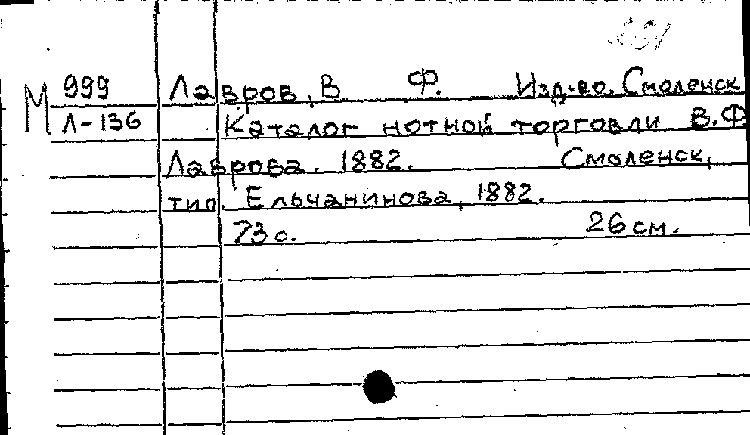 М 999 Лавров, В. Ф. Изд-во. Смоленск
Л-136 Каталог нотной торговли В.Ф
Лаврова. 1882. Смоленск,
тип. Ельчанинова, 1882.
73 с. 26 см.